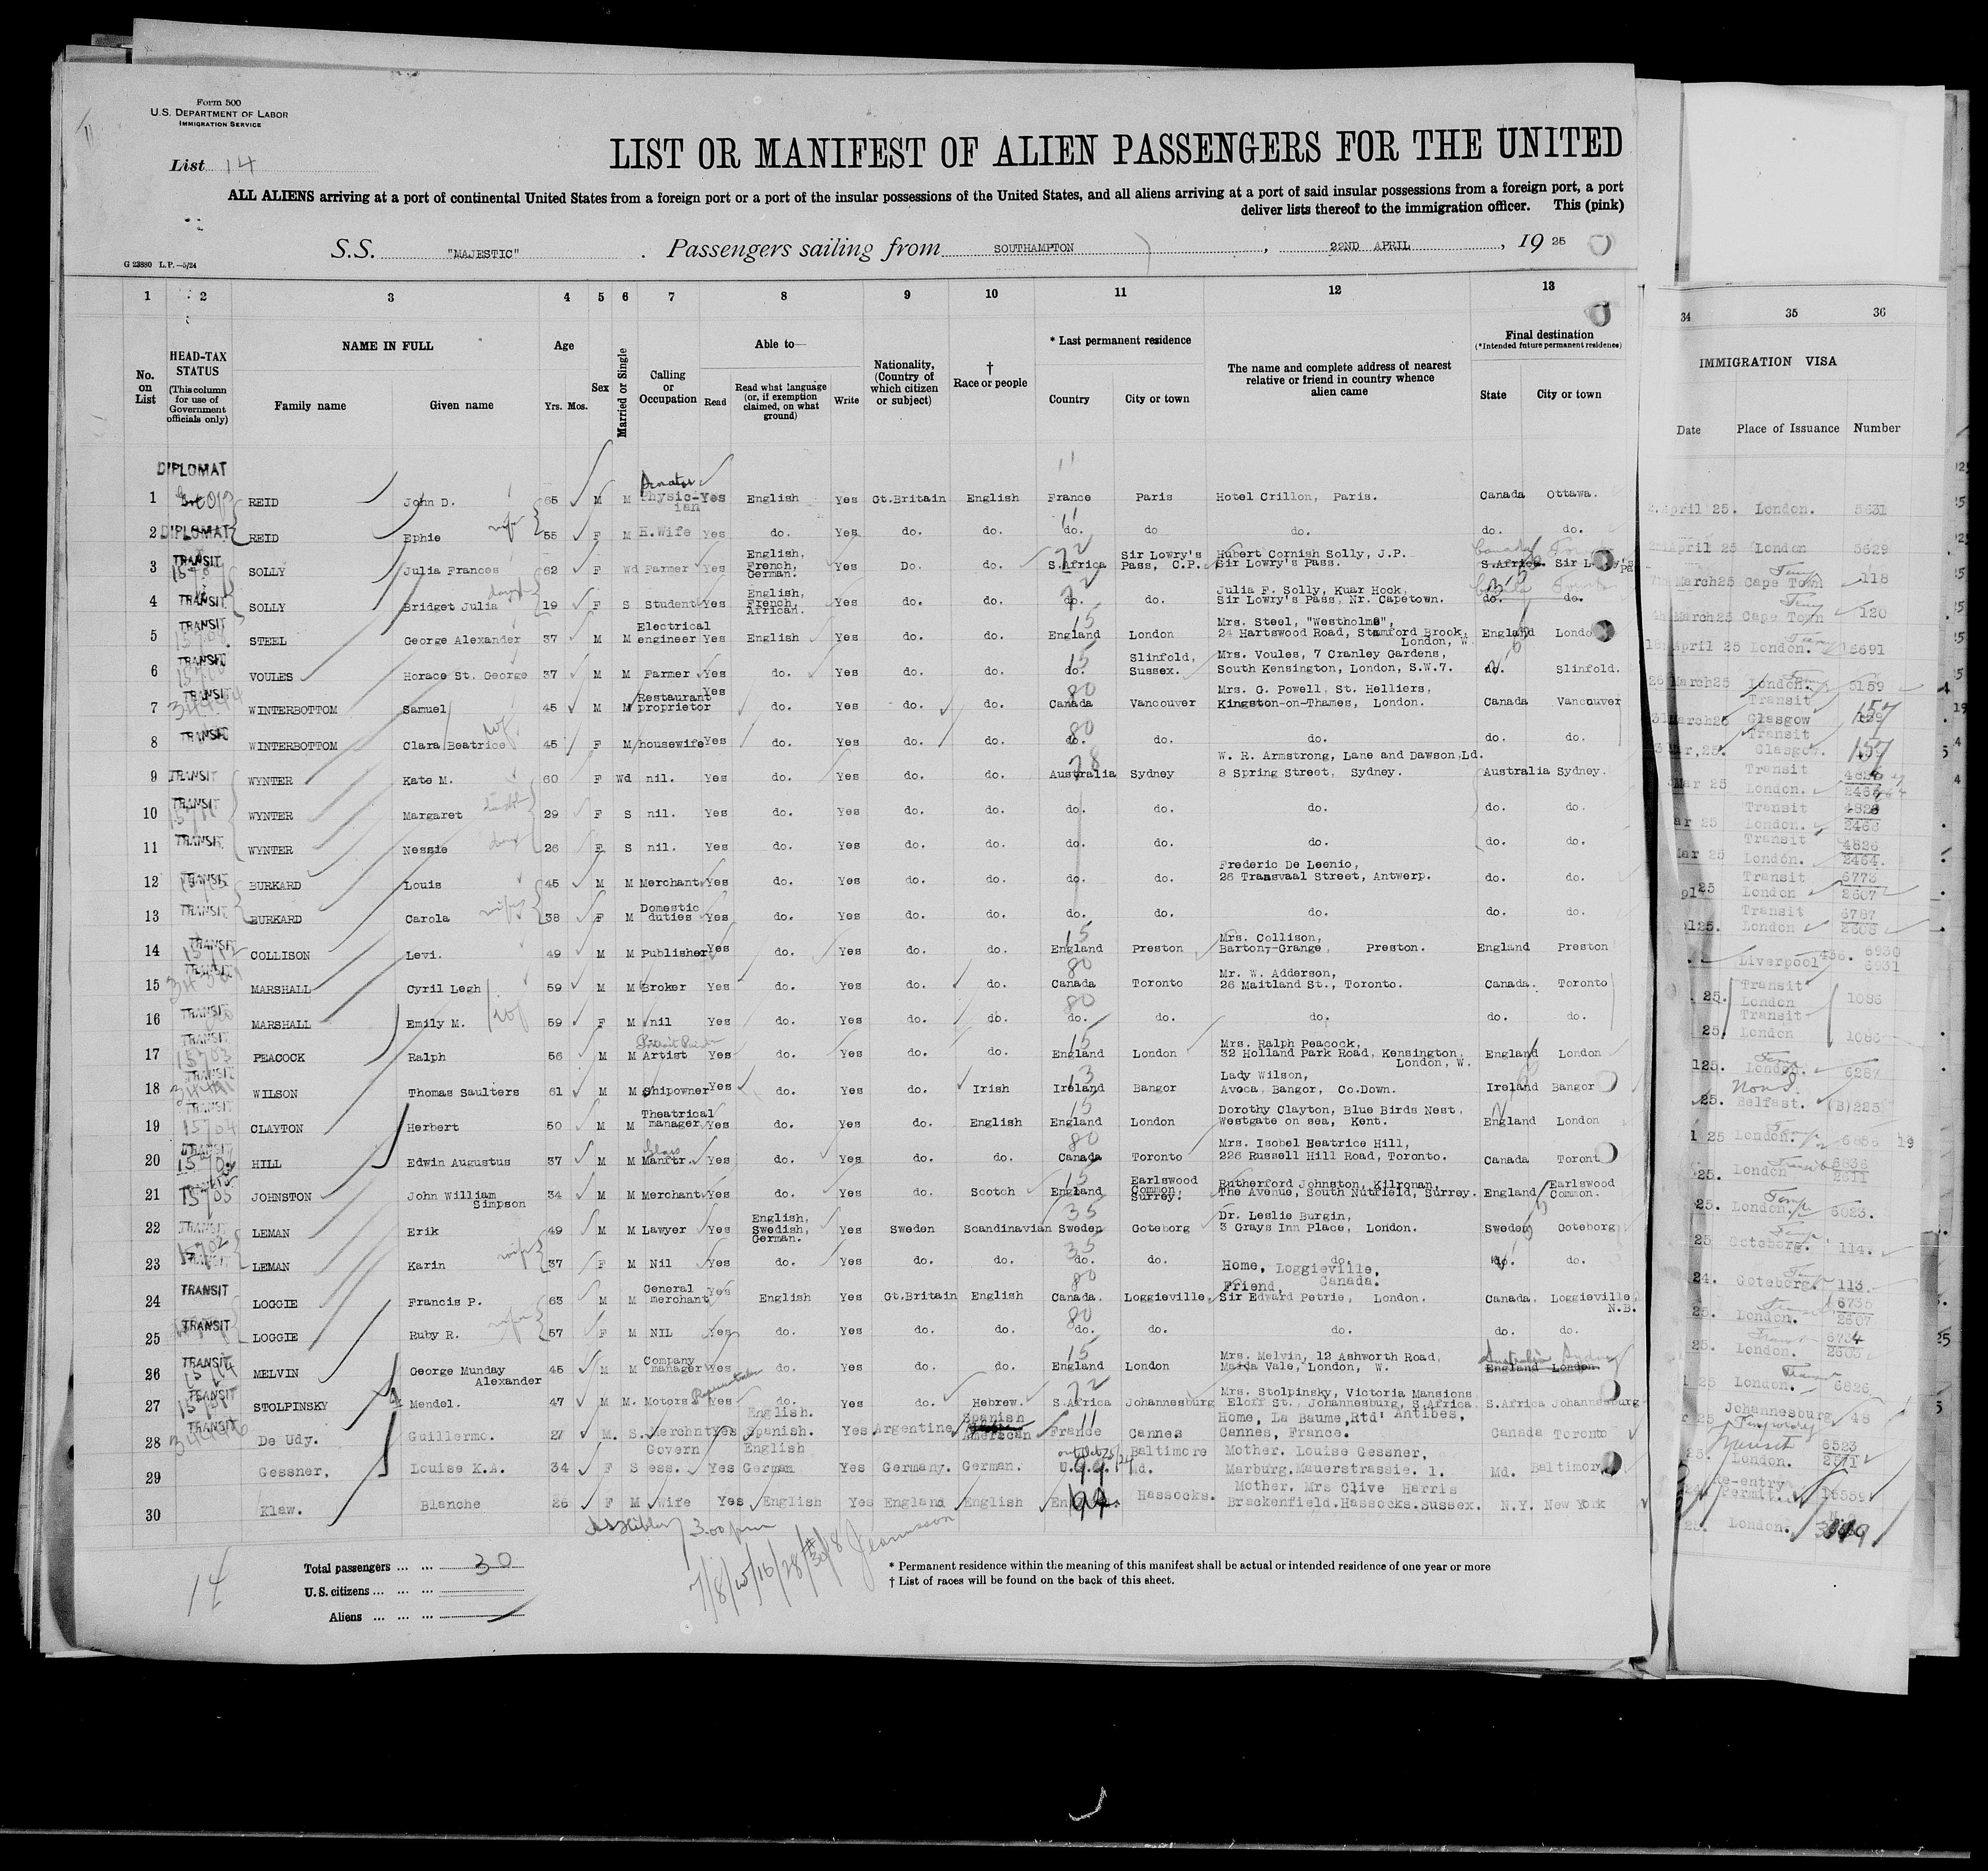 Form 500
U.S. DEPARTMENT OF LABOR
IMMIGRATION SERVICE
List 14
LIST OR MANIFEST OF ALIEN PASSENGERS FOR THE UNITED
ALL ALIENS arriving at a port of continental United States from a foreign port or a port of the insular possessions of the United States, and all aliens arriving at a port of said insular possessions from a foreign port, a port
deliver lists thereof to the immigration officer. This (pink)
S.S. "MAJESTIC" . Passengers sailing from SOUTHAMPTON , 22ND APRIL , 19 25
G 23880 L.P.—5/24
1 2 3 4 5 6 7 8 9 10 11 12 13 34 35 36
No. on List
HEAD-TAX STATUS (This column for use of Government officials only)
NAME IN FULL
Family name Given name
Age
Yrs. Mos.
Sex
Married or Single
Calling or Occupation
Able to—
Read
Read what language (or, if exemption claimed, on what ground)
Write
Nationality, (Country of which citizen or subject)
† Race or people
* Last permanent residence
Country City or town
The name and complete address of nearest relative or friend in country whence alien came
Final destination
(*Intended future permanent residence)
State City or town
IMMIGRATION VISA
Date Place of Issuance Number
DIPLOMAT
1 REID John D. 65 M M Physic-ian Senator Yes English Yes Gt.Britain English France Paris Hotel Crillon, Paris. Canada Ottawa. April 25. London. 5631
2 DIPLOMAT REID Ephie wife 55 F M H.Wife Yes do. Yes do. do. do. do do. do. do. April 25 London 5629
3 TRANSIT SOLLY Julia Frances 62 F Wd Farmer Yes English, French, German. Yes Do. do. S.Africa Sir Lowry's Pass, C.P. Hubert Cornish Solly, J.P. Sir Lowry's Pass. Canada S.Africa March25 Cape Town 118
4 TRANSIT SOLLY Bridget Julia 19 F S Student Yes English, French, African. Yes do. do. do. do. Julia F. Solly, Kuar Hock, Sir Lowry's Pass, Nr. Capetown. do. do. March25 Cape Town 120
5 TRANSIT STEEL George Alexander 37 M M Electrical engineer Yes English Yes do. do. England London Mrs. Steel, "Westholme", 24 Hartswood Road, Stamford Brook, London, W. England April 25 London. 5691
6 TRANSIT VOULES Horace St. George 37 M M Farmer Yes do. Yes do. do. do. Slinfold, Sussex. Mrs. Voules, 7 Cranley Gardens, South Kensington, London, S.W.7. do. Slinfold. March25 London. 5159
7 TRANSIT WINTERBOTTOM Samuel 45 M M Restaurant proprietor Yes do. Yes do. do. Canada Vancouver Mrs. G. Powell, St. Helliers, Kingston-on-Thames, London. Canada Vancouver March25 Transit Glasgow 157
8 TRANSIT WINTERBOTTOM Clara Beatrice wife 45 F M housewife Yes do. Yes do. do. do. do. do. do. do. Mar,25. Transit Glasgow. 157
9 TRANSIT WYNTER Kate M. 60 F Wd nil. Yes do. Yes do. do. Australia Sydney W. R. Armstrong, Lane and Dawson,Ld. 8 Spring Street, Sydney. Australia Sydney. Mar 25 Transit London.
10 TRANSIT WYNTER Margaret 29 F S nil. Yes do. Yes do. do. do. do. do. do. do. Transit London.
11 TRANSIT WYNTER Nessie 26 F S nil. Yes do. Yes do. do. do. do. do. do. do. Mar 25 Transit London. 4826 2464.
12 TRANSIT BURKARD Louis 45 M M Merchant Yes do. Yes do. do. do. do. Frederic De Leenio, 26 Transvaal Street, Antwerp. do. do. Transit London 6773 2607
13 TRANSIT BURKARD Carola wife 38 F M Domestic duties Yes do. Yes do. do. do. do. do. do. do. Transit London 6787 2608
14 TRANSIT COLLISON Levi. 49 M M Publisher Yes do. Yes do. do. England Preston Mrs. Collison, Barton,-Grange, Preston. England Preston Liverpool 6930 6931
15 TRANSIT MARSHALL Cyril Legh 59 M M Broker Yes do. Yes do. do. Canada Toronto Mr. W. Adderson, 26 Maitland St., Toronto. Canada. Toronto 25. Transit London 1086
16 TRANSIT MARSHALL Emily M. wif 59 F M nil Yes do. Yes do. do. do. do. do. do. do. 25. Transit London 1086
17 TRANSIT 15703 PEACOCK Ralph 56 M M Artist Yes do. Yes do. do. England London Mrs. Ralph Peacock, 32 Holland Park Road, Kensington, London, W. England London London. 6287
18 TRANSIT WILSON Thomas Saulters 61 M M Shipowner Yes do. Yes do. Irish Ireland Bangor Lady Wilson, Avoca, Bangor, Co.Down. Ireland Bangor 25. Belfast. (B)225
19 TRANSIT 15704 CLAYTON Herbert 50 M M Theatrical manager Yes do. Yes do. English England London Dorothy Clayton, Blue Birds Nest. Westgate on sea, Kent. England London 25 London. 6856
20 TRANSIT HILL Edwin Augustus 37 M M Glass Manftr. Yes do. Yes do. do. Canada Toronto Mrs. Isobel Beatrice Hill, 226 Russell Hill Road, Toronto. Canada 25. London Transit
21 15705 JOHNSTON John William Simpson 34 M M Merchant Yes do. Yes do. Scotch England Earlswood Common, Surrey. Rutherford Johnston, Kilronan, The Avenue, South Nutfield, Surrey. England Earlswood Common. 25. London. 6023.
22 TRANSIT LEMAN Erik 49 M M Lawyer Yes English, Swedish, German. Yes Sweden Scandinavian Sweden Goteborg Dr. Leslie Burgin, 3 Grays Inn Place, London. Sweden Goteborg 25 Goteborg. 114.
23 TRANSIT LEMAN Karin wife 37 F M Nil Yes do. Yes do. do. do. do. do. do. do. 24. Goteborg. 113.
24 TRANSIT LOGGIE Francis P. 63 M M General merchant Yes English Yes Gt.Britain English Canada. Loggieville. Home, Loggieville, Canada. Friend, Sir Edward Petrie, London. Canada. Loggieville, N.B. 25. London. 6735 2607
25 TRANSIT LOGGIE Ruby R. wife 57 F M NIL Yes do. Yes do. do. do. do. do. do. do. 25. London.
26 TRANSIT MELVIN George Munday Alexander 45 M M Company manager Yes do. Yes do. do. England London Mrs. Melvin, 12 Ashworth Road, Maida Vale, London, W. Australia Sydney England London. 25 London. 6826
27 TRANSIT STOLPINSKY Mendel. 47 M M. Motors Representative Yes do. Yes do. Hebrew. S.Africa Johannesburg Mrs. Stolpinsky, Victoria Mansions Eloff St., Johannesburg, S.Africa S.Africa Johannesburg Johannesburg 48
28 TRANSIT De Udy. Guillermo. 27 M. S. Merchnt Yes English. Spanish. Yes Argentine Spanish American France Cannes Home, La Baume,Rtd' Antibes, Cannes, France. Canada Toronto 25. London. 6523 2571
29 Gessner, Louise K.A. 34 F S Govern ess. Yes English German Yes Germany. German. U.S.A. Baltimore Md. Mother. Louise Gessner, Marburg.Mauerstrassie. 1. Md. Re-entry Permit. 16559
30 Klaw. Blanche 26 F M Wife Yes English Yes England English Hassocks. Mother. Mrs Clive Harris Brackenfield.Hassocks.Sussex. N.Y. New York London.
3.00 pm
Total passengers ... ... 30
U.S. citizens ... ... ...
Aliens ... ... ...
14
* Permanent residence within the meaning of this manifest shall be actual or intended residence of one year or more
† List of races will be found on the back of this sheet.